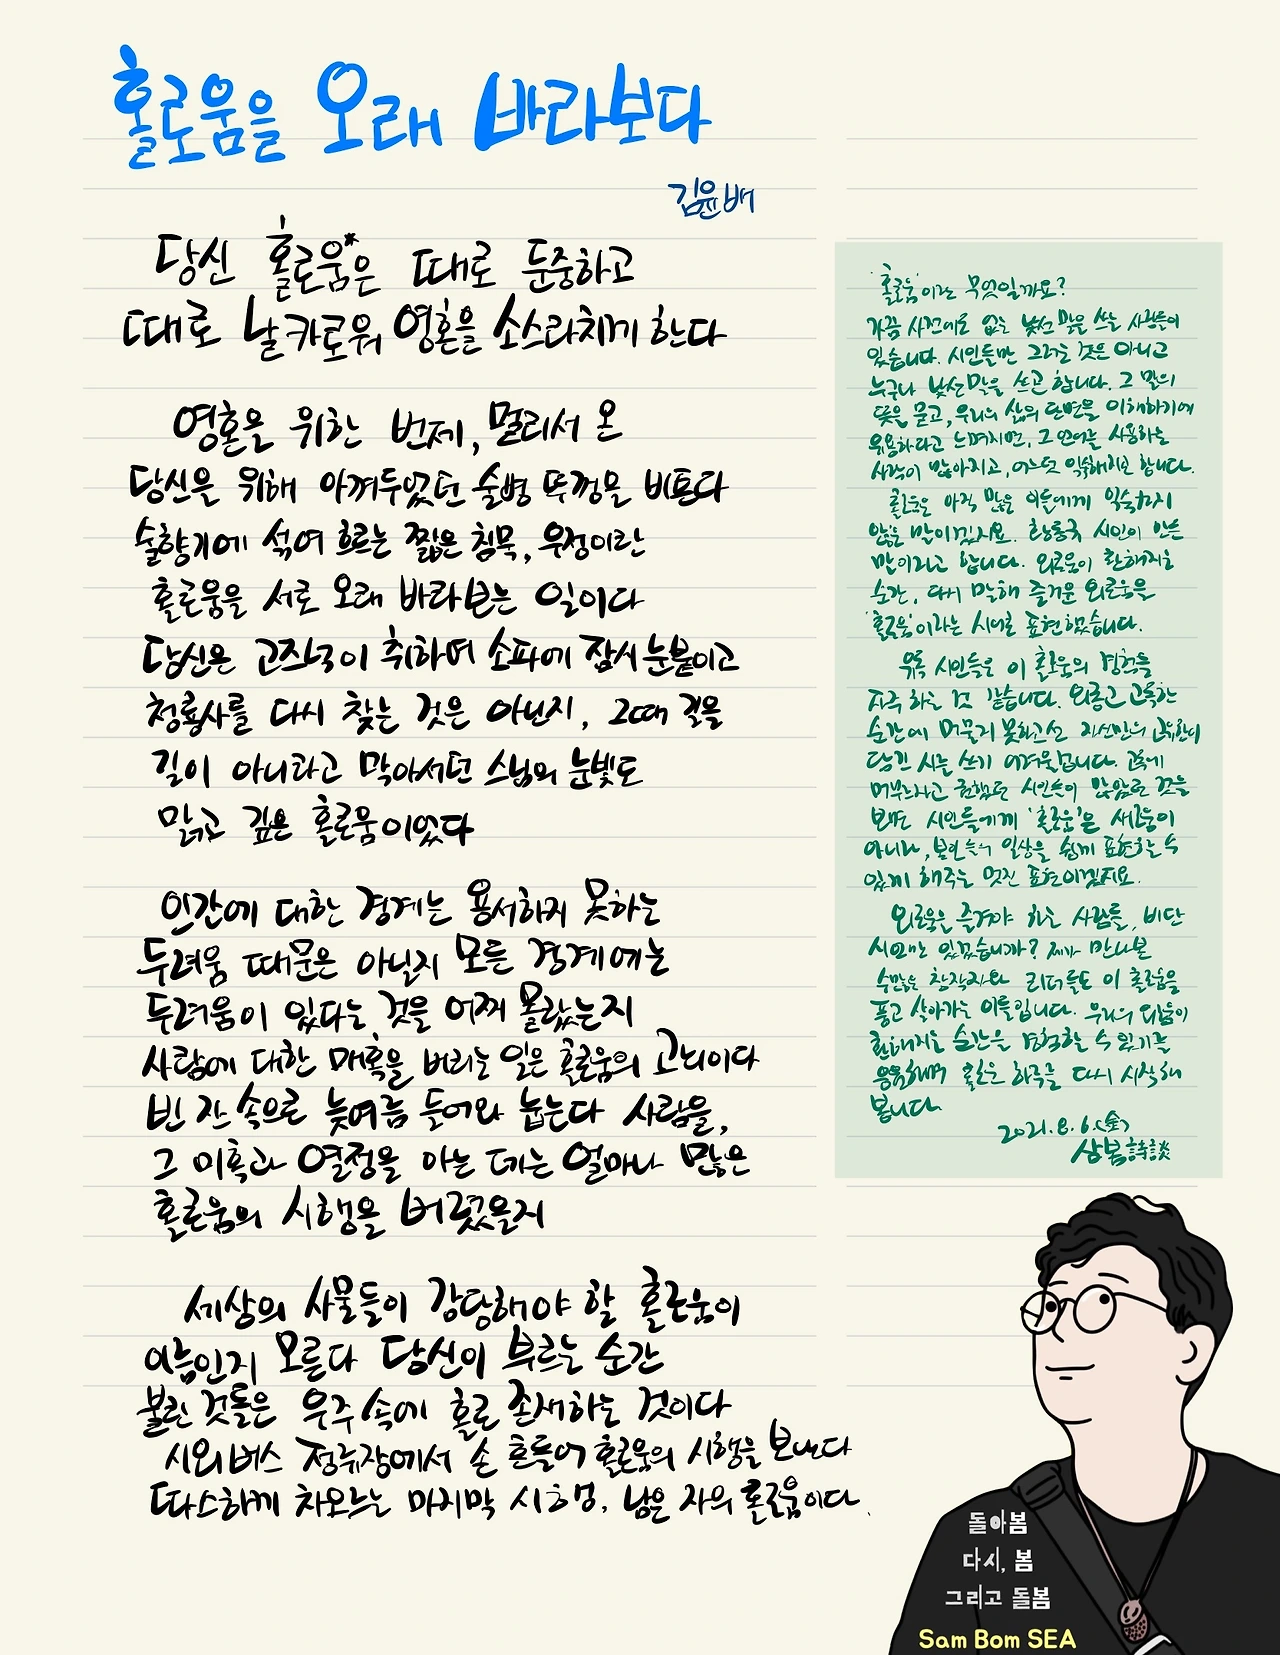 홀로움을 오래 바라보다
김윤배
당신 홀로움*은 때로 둔중하고
때로 날카로워 영혼을 소스라치게 한다
영혼을 위한 번제, 멀리서 온
당신을 위해 아껴두었던 술병 뚜껑을 비튼다
술향기에 섞여 흐르는 짧은 침묵, 우정이란
홀로움을 서로 오래 바라보는 일이다
당신은 고즈넉이 취하며 소파에 잠시 눈붙이고
청룡사를 다시 찾는 것은 아닌지, 그때 길을
길이 아니라고 막아서던 스님의 눈빛도
맑고 깊은 홀로움이었다
인간에 대한 경계는 용서하지 못하는
두려움 때문은 아닌지 모든 경계에는
두려움이 있다는 것을 어찌 몰랐는지
사람에 대한 매혹을 버리는 일은 홀로움의 고뇌이다
빈 잔 속으로 늦여름 들어와 눕는다 사람을,
그 미혹과 열정을 아는 데는 얼마나 많은
홀로움의 시행을 버렸을지
세상의 사물들이 감당해야 할 홀로움이
이름인지 모른다 당신이 부르는 순간
불린 것들은 우주 속에 홀로 존재하는 것이다
시외버스 정류장에서 손 흔들어 홀로움의 시행을 보낸다
따스하게 차오르는 마지막 시행, 남은 자의 홀로움이다.
'홀로움'이란 무엇일까요?
가끔 사전에도 없는 낯선 말을 쓰는 사람들이
있습니다. 시인들만 그러는 것은 아니고
누구나 낯선 말을 쓰곤 합니다. 그 말의
뜻을 묻고, 우리의 삶의 단면을 이해하기에
유용하다고 느껴지면, 그 언어를 사용하는
사람이 많아지고, 어느덧 익숙해지곤 합니다.
홀로움은 아직 많은 이들에게 익숙하지
않은 말이겠지요. 황동규 시인이 만든
말이라고 합니다. 외로움이 환해지는
순간, 다시 말해 즐거운 외로움을
'홀로움'이라는 시어로 표현했습니다.
유독 시인들은 이 홀로움의 경험을
자주 하는 것 같습니다. 외롭고 고독한
순간에 머물지 못하고선 자신만의 고유함이
담긴 시를 쓰기 어려울겁니다. 고독에
머무르라고 권했던 시인들이 많았던 것을
보면 시인들에게 '홀로움'은 새로움이
아니라, 본인들의 일상을 쉽게 표현할 수
있게 해주는 멋진 표현이겠지요.
외로움을 즐겨야 하는 사람들, 비단
시인만 있겠습니까? 제가 만나본
수많은 창작자와 리더들도 이 홀로움을
품고 살아가는 이들입니다. 우리의 외로움이
환해지는 순간을 경험할 수 있기를
응원하며 홀로운 하루를 다시 시작해
봅니다.
2021.8.6.(金)
삼봄詩談
돌아봄
다시, 봄
그리고 돌봄
Sam Bom SEA